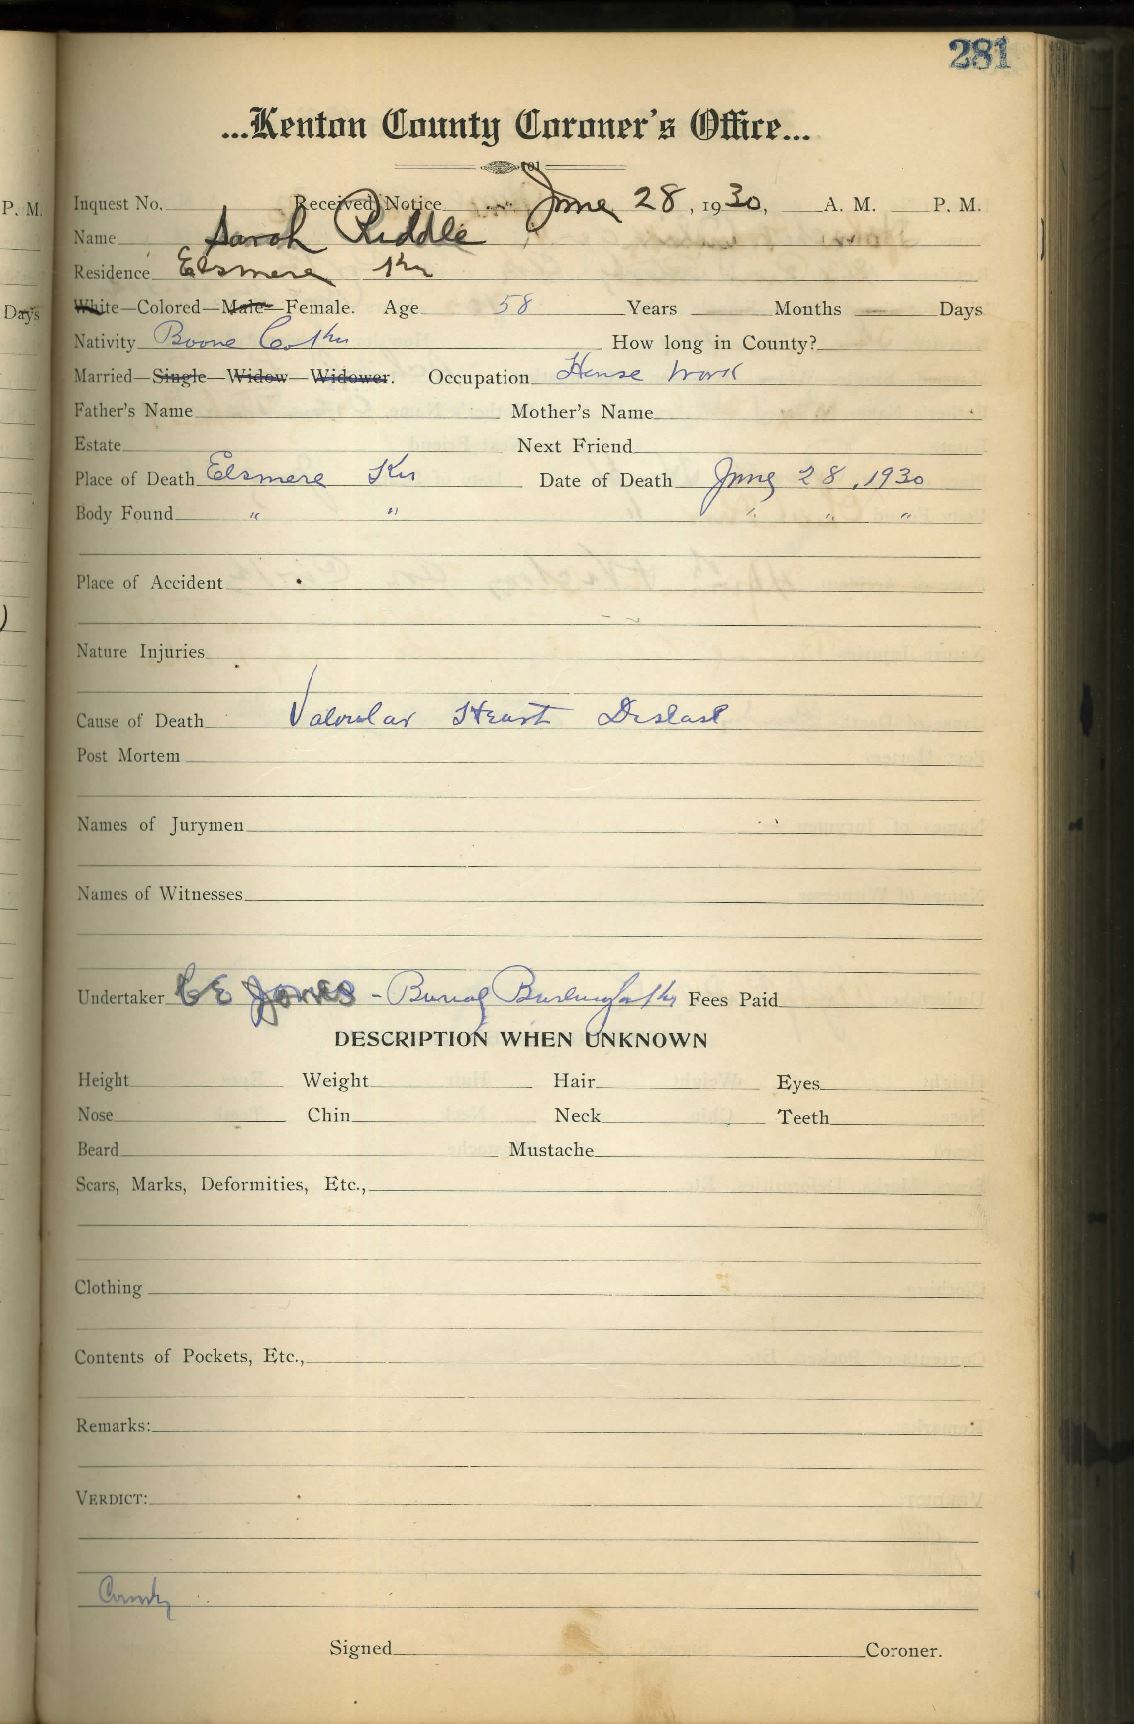 281
...Kenton County Coroner's Office...
101
P. M. Inquest No. Received Notice June 28, 1930, A. M. P. M.
Name Sarah Riddle
Residence Elsmere Ky
Days White—Colored—Male—Female. Age 58 Years Months Days
Nativity Boone Co. Ky How long in County?
Married—Single—Widow—Widower. Occupation House Work
Father's Name Mother's Name
Estate Next Friend
Place of Death Elsmere Ky Date of Death June 28, 1930
Body Found " " " " "
Place of Accident
)
Nature Injuries
Cause of Death Valvular Heart Disease
Post Mortem
Names of Jurymen
Names of Witnesses
Undertaker CE Jones - Burial Burlington Ky Fees Paid
DESCRIPTION WHEN UNKNOWN
Height Weight Hair Eyes
Nose Chin Neck Teeth
Beard Mustache
Scars, Marks, Deformities, Etc.,
Clothing
Contents of Pockets, Etc.,
Remarks:
VERDICT:
County
Signed Coroner.